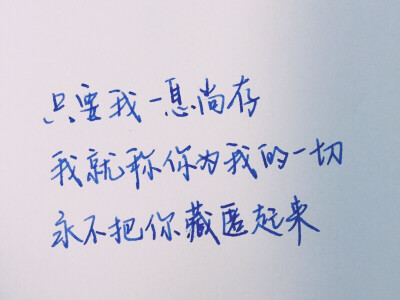 只要我一息尚存
我就称你为我的一切
永不把你藏匿起来